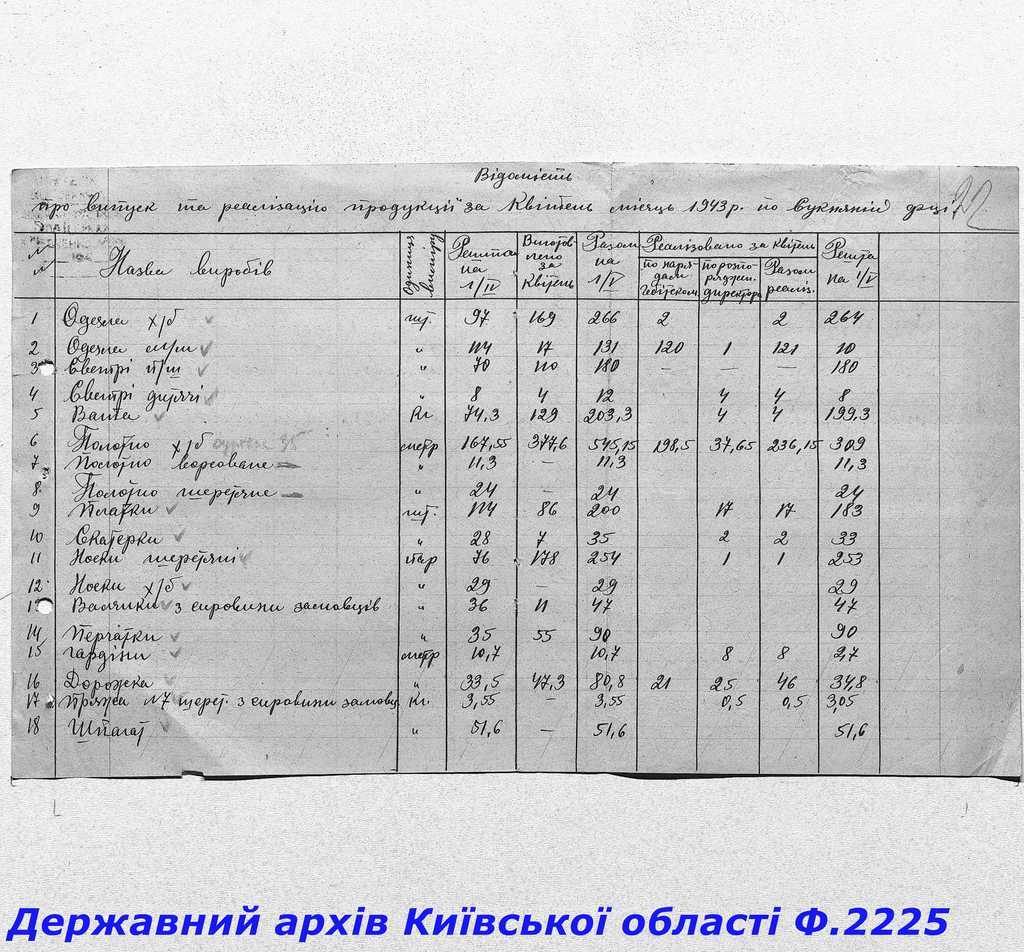 Відомість
про випуск та реалізацію продукції за Квітень місяць 1943 р. по
22
№ Назва виробів Одиниця виміру Решта на 1/IV Виготовлено за Квітень Разом на 1/V Реалізовано за Квітень Решта на 1/V
по нарядам Гебітском. по розпоряджен. директора Разом реаліз.
1 Одеяла х/б шт. 97 169 266 2 2 264
2 Одеяла " 114 17 131 120 1 121 10
3 Светрі п/ш " 70 110 180 — — — 180
4 Светрі дитячі " 8 4 12 4 4 8
5 Вата Кг 74,3 129 203,3 4 4 199,3
6 Полотно х/б метр 167,55 377,6 545,15 198,5 37,65 236,15 309
7 Полотно ворсоване " 11,3 — 11,3 11,3
8 Полотно шерстяне " 24 — 24 24
9 Платки шт. 114 86 200 17 17 183
10 Скатерки " 28 7 35 2 2 33
11 Носки шерстяні пар 76 178 254 1 1 253
12 Носки х/б " 29 — 29 29
13 з сировини замовців " 36 11 47 47
14 Перчатки " 35 55 90 90
15 Гардіни метр 10,7 10,7 8 8 2,7
16 Дорожка " 33,5 47,3 80,8 21 25 46 34,8
17 Пряжа №7 шерст. з сировини замовц. Кг. 3,55 — 3,55 0,5 0,5 3,05
18 Шпагат " 51,6 — 51,6 51,6
Державний архів Київської області Ф.2225